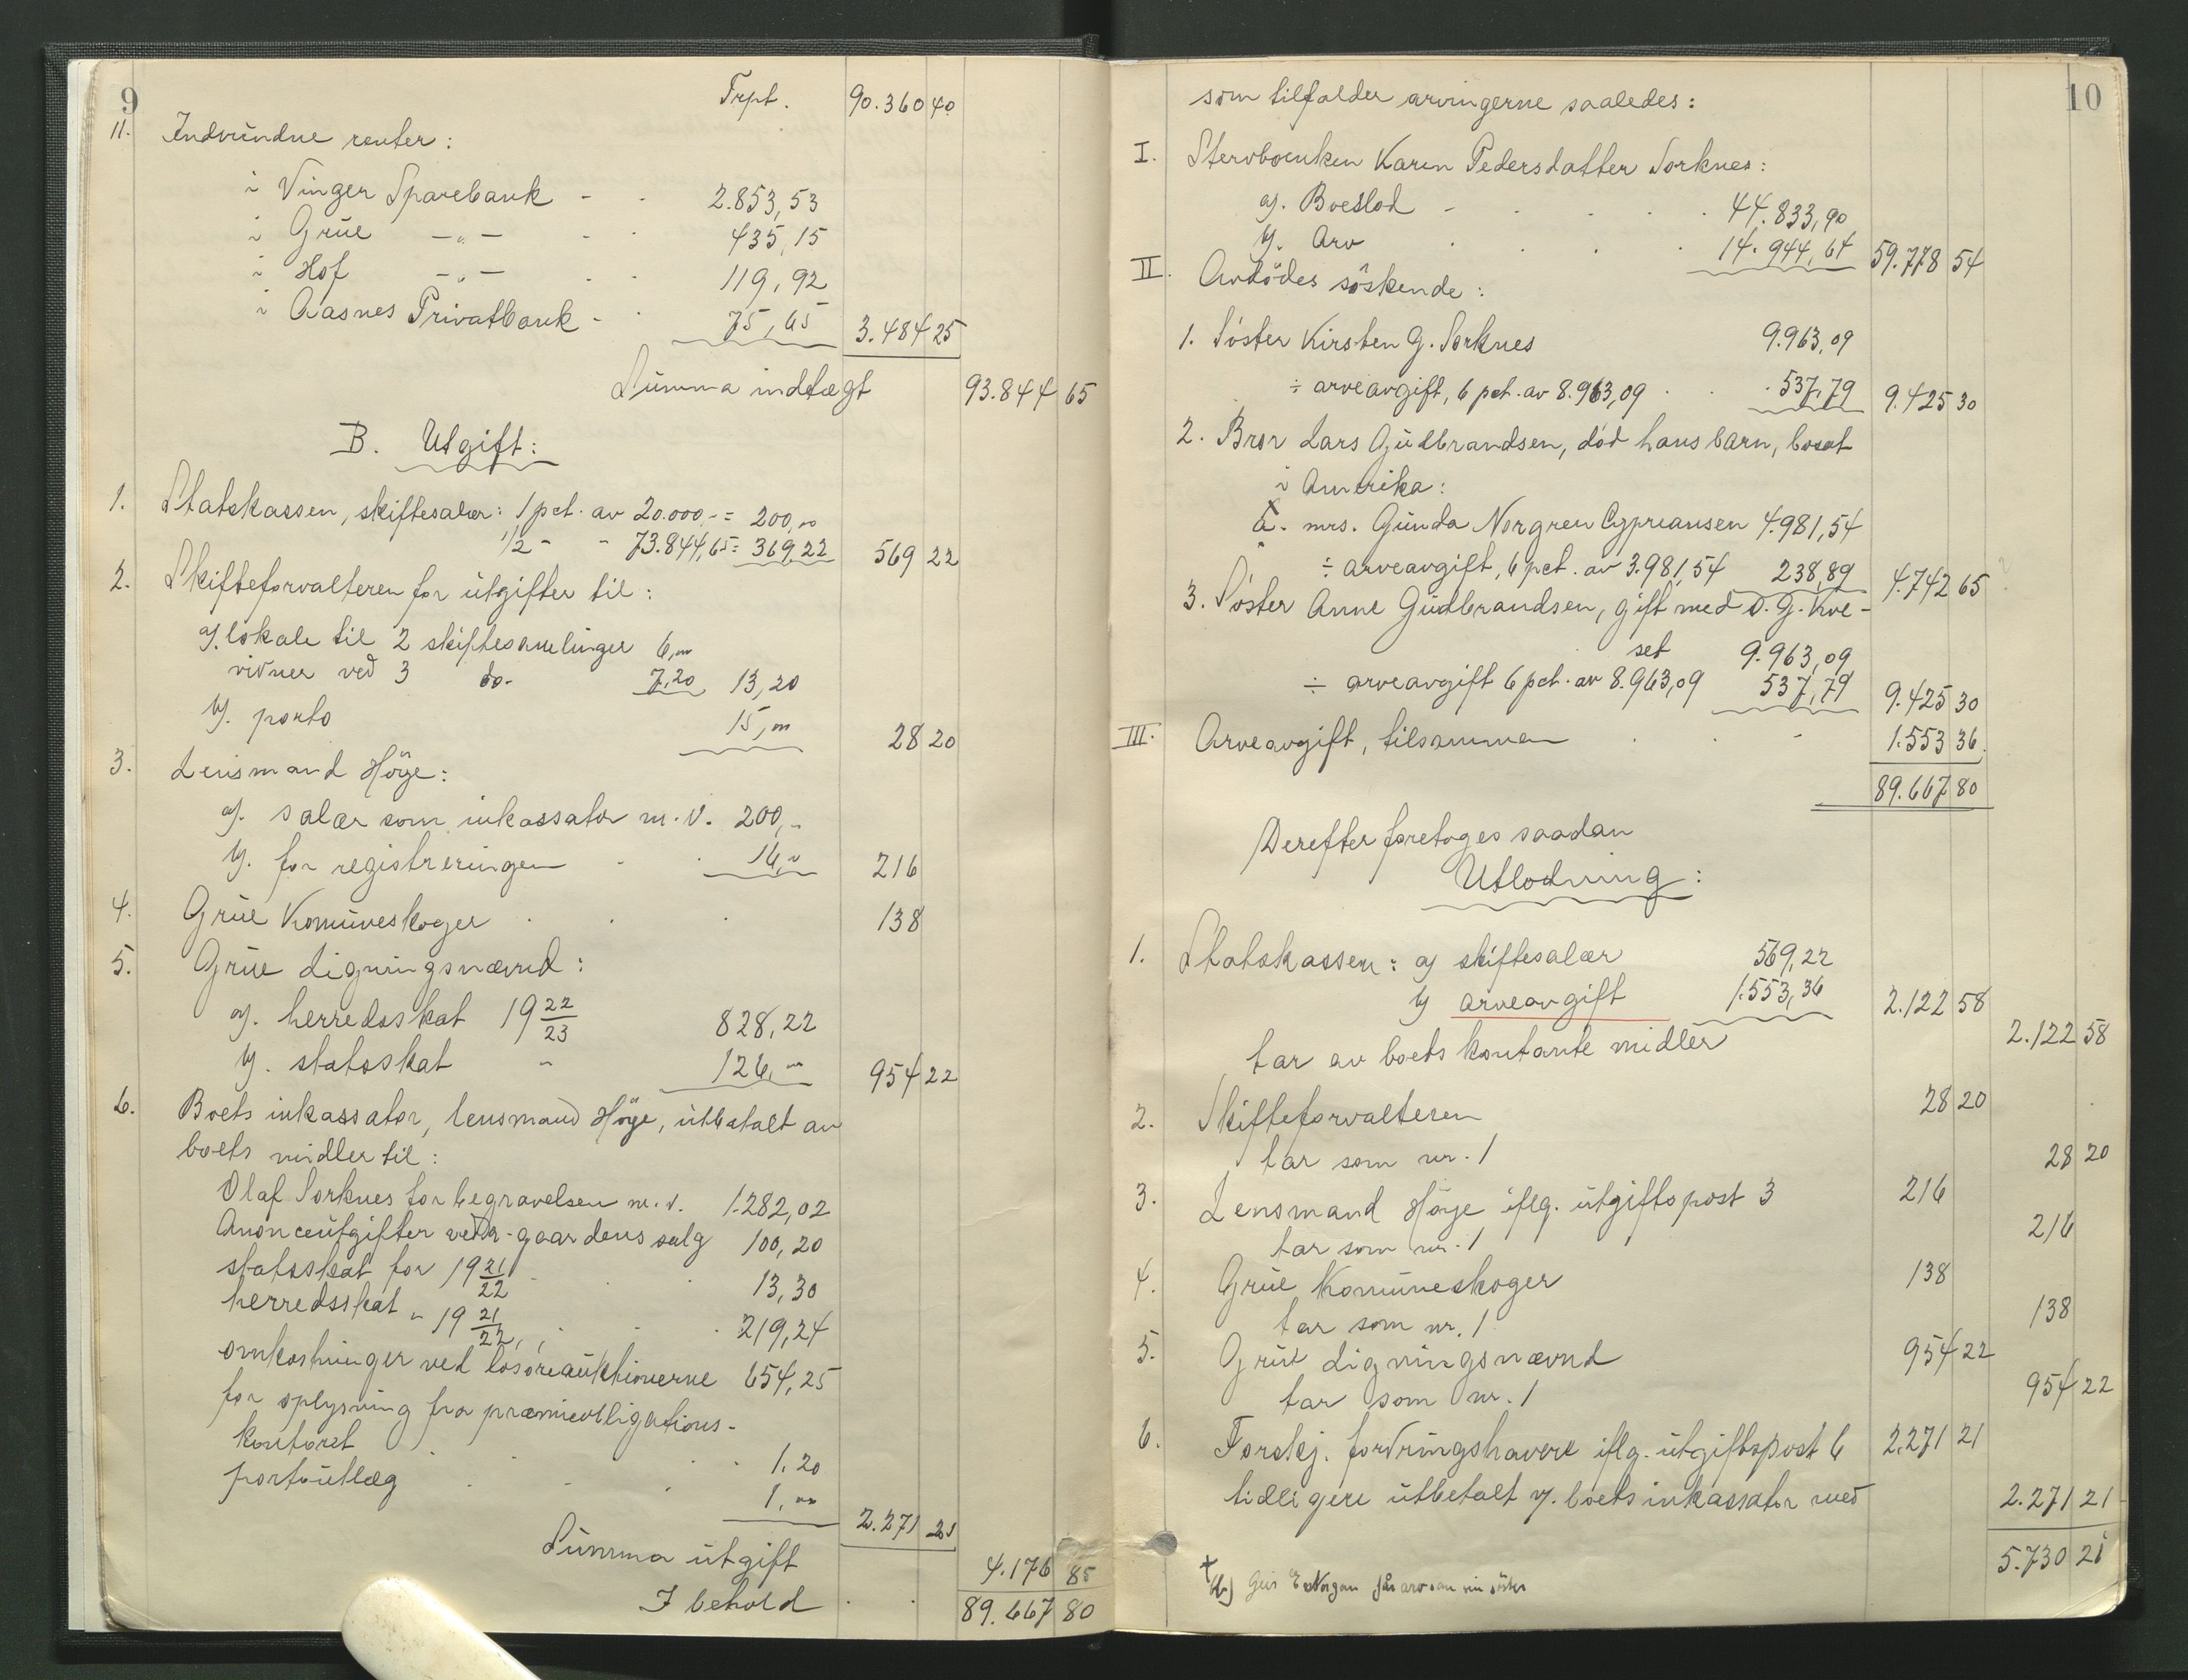 9
Trpt. 90.360 40
11. Indvundne renter:
i Vinger Sparebank - - 2.853,53
i Grue -"- - - 435,15
i Hof -"- - - 119,92
i Aasnes Privatbank - - 75,65 3.484 25
Summa indtægt 93.844 65
B. Utgift:
1. Statskassen, skiftesalær: 1 pct. av 20.000,- = 200,00
1/2 - - 73.844,65 = 369,22 569 22
2. Skifteforvalteren for utgifter til:
a). lokale til 2 skiftesamlinger 6,00
vidner ved 3 do- 7,20 13,20
b). porto 15,00 28 20
3. Lensmand Höye:
a). salær som inkassator m.v. 200,-
b). for registreringen - . 16,- 216
4. Grue Komuneskoger . . . 138
5. Grue Ligningsnævnd:
a). herredsskat 19 22/23 828,22
b). statsskat - 126,00 954 22
6. Boets inkassator, lensmand Höye, utbetalt av
boets midler til:
Olaf Sorknes for begravelsen m.v. 1.282,02
Anonceutgifter vedr. gaardens salg 100,20
statsskat for 19 21/22 . . 13,30
herredsskat " 19 21/22 . . . 219,24
omkostninger ved losöreauktionerne 654,25
for oplysning fra præmieobligations-
kontoret . . . 1,20
portoutlæg . . . 1,00 2.271 21
Summa utgift 4.176 85
I behold . . 89.667 80
10
som tilfalder arvingerne saaledes:
I. Stervboenken Karen Pedersdatter Sorknes:
a). Boeslod - . . . . 44.833,90
b). Arv . . . 14.944,64 59.778 54
II. Avdödes söskende:
1. Söster Kirsten G. Sorknes 9.963,09
÷ arveavgift, 6 pct. av 8.963,09 . . 537,79 9.425 30
2. Bror Lars Gudbrandsen, död hans barn, bosat
i Amerika:
a. mrs. Gunda Norgren Cypreansen 4.981,54
÷ arveavgift, 6 pct. av 3.981,54 238,89 4.742 65
3. Söster Anne Gudbrandsen, gift med O. G. Kve-
set 9.963,09
÷ arveavgift 6 pct. av 8.963,09 537,79 9.425 30
III. Arveavgift, tilsammen . . - 1.553 36
89.667 80
Derefter foretages saadan
Utlodning:
1. Statskassen: a) skiftesalær 569,22
b) arveavgift 1.553,36 2.122 58
tar av boets kontante midler 2.122 58
2. Skifteforvalteren 28 20
tar som nr. 1 28 20
3. Lensmand Höye iflg. utgiftspost 3 216
tar som nr. 1 216
4. Grue Komuneskoger 138
tar som nr. 1 138
5. Grue Ligningsnævnd 954 22
tar som nr. 1 954 22
6. Forskj. fordringshavere iflg. utgiftspost 6 2.271 21
tidligere utbetalt v. boets inkassator med 2.271 21
5.730 21